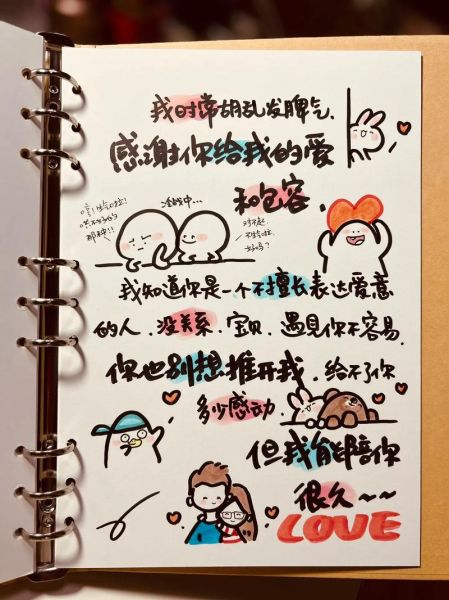 我时常胡乱发脾气.
感谢你给我的爱
和包容.
哼!生气啦!
哄不好的
那种!!
冷战中...
对不起
不生气啦
好吗?
我知道你是一个不擅长表达爱意
的人.没关系.宝贝.遇見你不容易.
你也别想推开我.给不了你
多少感动
但我能陪你
很久~~
LOVE